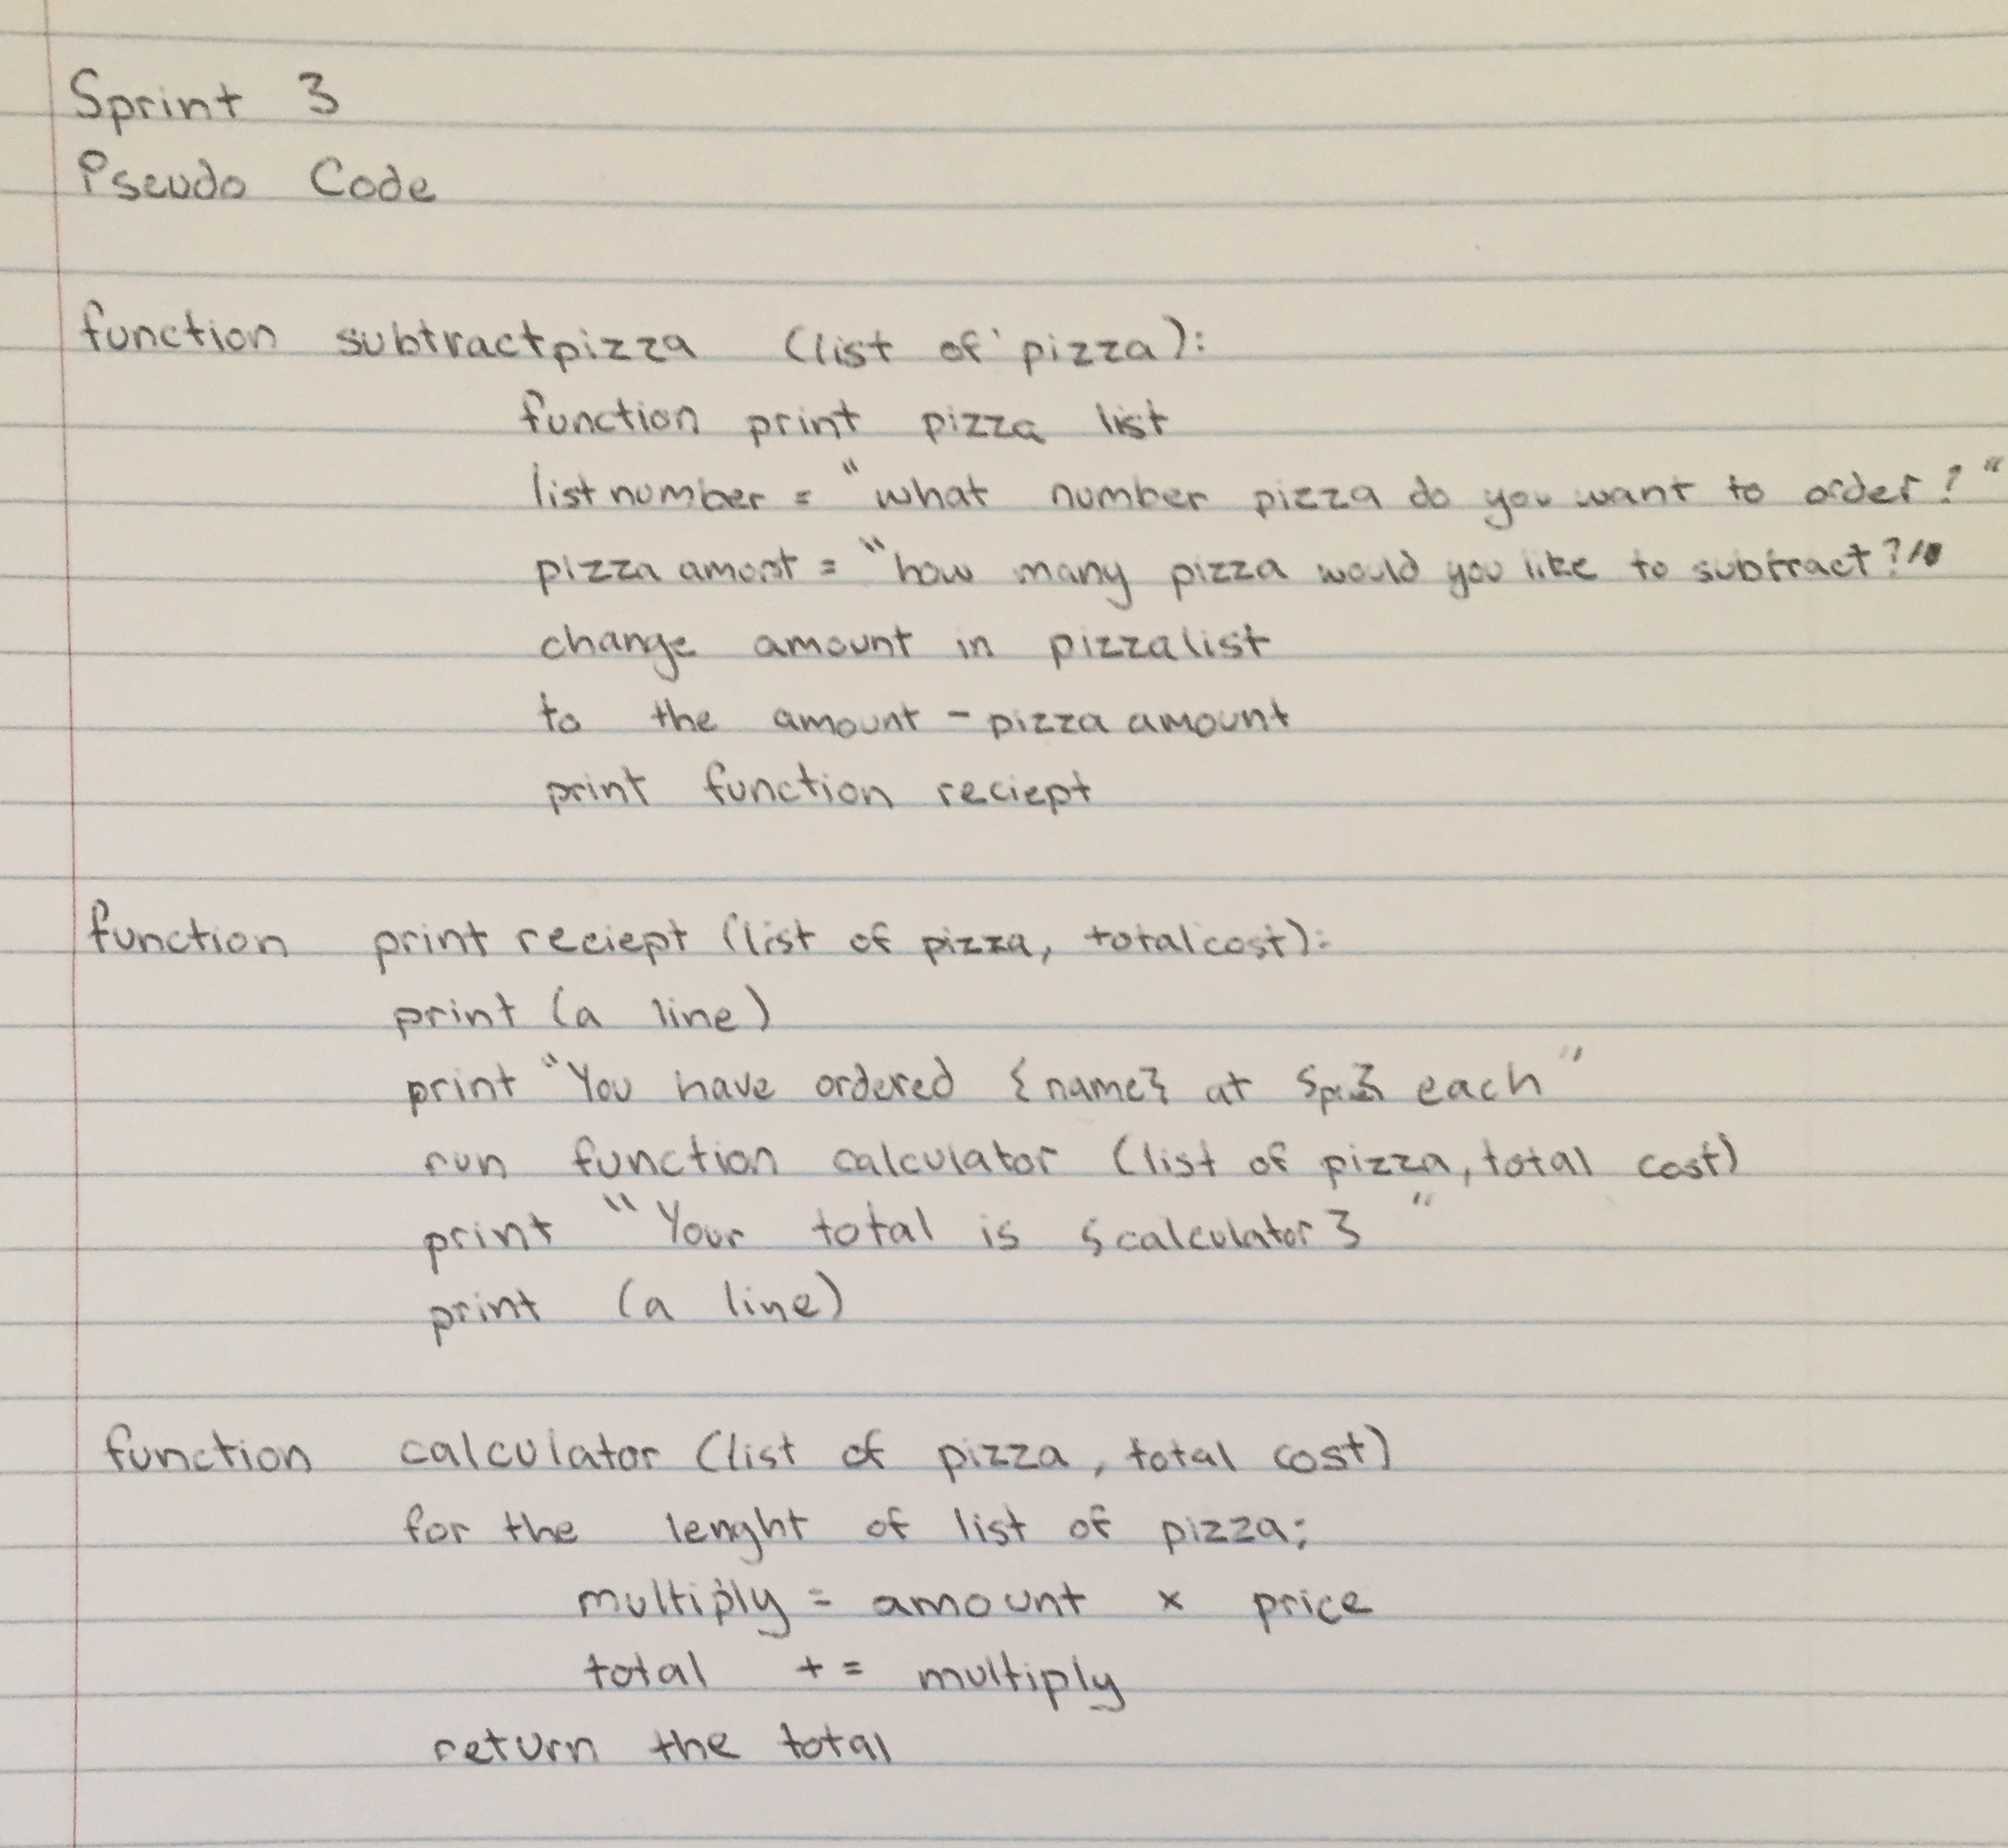 Sprint 3
Pseudo Code
function subtractpizza (list of pizza):
function print pizza list
listnumber = "what number pizza do you want to order?"
pizza amont = "how many pizza would you like to subtract?"
change amount in pizzalist
to the amount - pizza amount
print function reciept
function print reciept (list of pizza, totalcost):
print (a line)
print "You have ordered {name} at each"
run function calculator (list of pizza, total cost)
print "Your total is {calculator}"
print (a line)
function calculator (list of pizza, total cost)
for the lenght of list of pizza;
multiply = amount x price
total += multiply
return the total